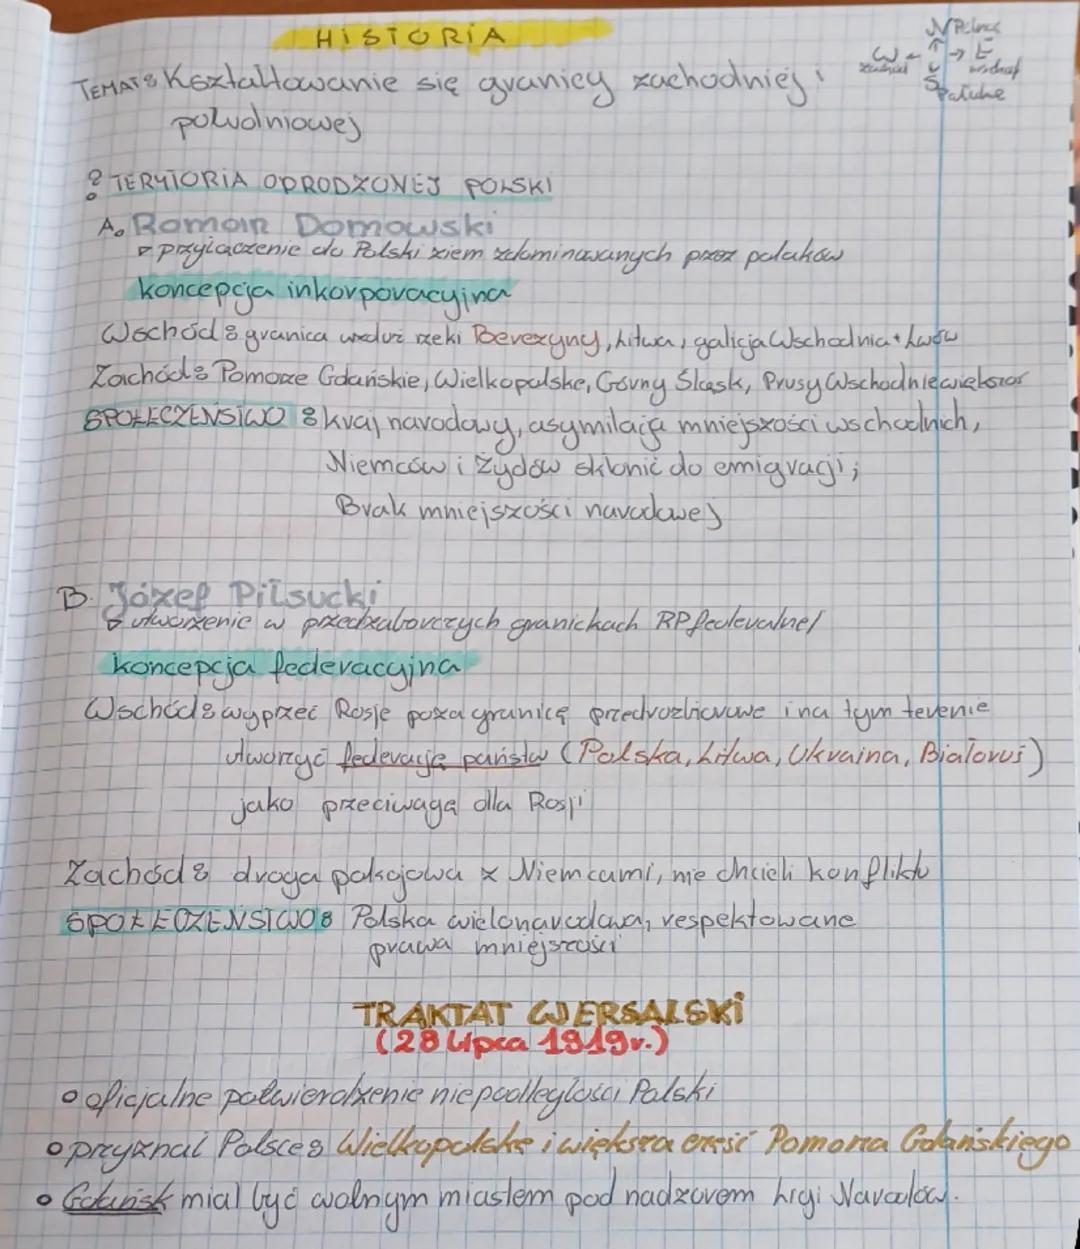 HISTORIA
N Północ
W ← ↑ → E
zachód wschód
S
Południe
TEMAT: Kształtowanie się granicy zachodniej i
południowej
? TERYTORIA ODRODZONEJ POLSKI
A. Roman Domowski
przyłączenie do Polski ziem zdominowanych przez polaków
koncepcja inkorporacyjna
Wschód: granica wzdłuż rzeki Berezyny, Litwa, galicja Wschodnia + Lwów
Zachód: Pomorze Gdańskie, Wielkopolske, Górny Śląsk, Prusy Wschodnie większość
SPOŁECZEŃSTWO: kraj narodowy, asymilacja mniejszości wschodnich,
Niemców i Żydów skłonić do emigracji;
Brak mniejszości narodowej
B. Józef Piłsucki
utworzenie w przedzaborczych granickach RP federalnej
koncepcja federacyjna
Wschód: wyprzeć Rosje poza granicę przedrozbiorowe i na tym terenie
utworzyć federacje państw (Polska, Litwa, Ukraina, Białoruś)
jako przeciwaga dla Rosji
Zachód: droga pokojowa z Niemcami, nie chcieli konfliktu
SPOŁECZEŃSTWO: Polska wielonarodowa, respektowane
prawa mniejszości
TRAKTAT WERSALSKI
(28 Lipca 1919r.)
oficjalne potwierdzenie niepodległości Polski
przyznał Polsce: Wielkopolske i większa część Pomorza Gdańskiego
Gdańsk miał być wolnym miastem pod nadzorem Ligi Narodów.